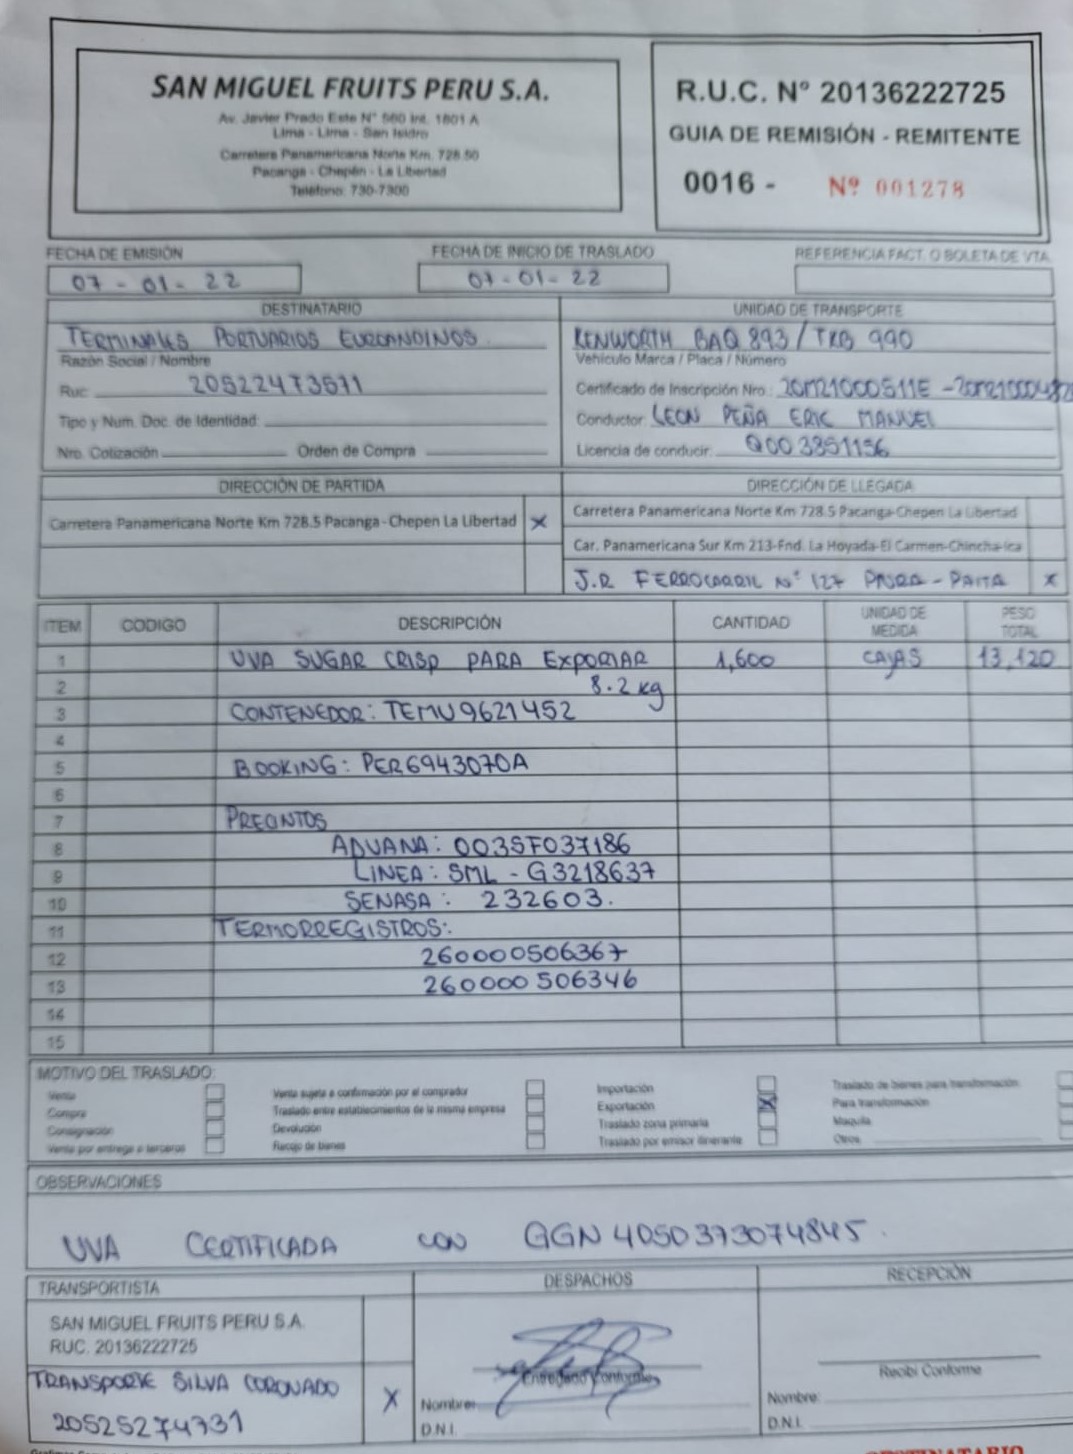 SAN MIGUEL FRUITS PERU S.A.
Av. Javier Prado Este N° 560 Int. 1801 A
Lima - Lima - San Isidro
Carretera Panamericana Norte Km. 728.50
Pacanga - Chepén - La Libertad
Teléfono: 730-7300
R.U.C. N° 20136222725
GUIA DE REMISIÓN - REMITENTE
0016 - Nº 001278
FECHA DE EMISIÓN
07 - 01 - 22
FECHA DE INICIO DE TRASLADO
07 - 01 - 22
REFERENCIA FACT. O BOLETA DE VTA.
DESTINATARIO
TERMINALES PORTUARIOS EUROANDINOS
Razón Social / Nombre
Ruc: 20522473571
Tipo y Num. Doc. de Identidad:
Nro. Cotización Orden de Compra
UNIDAD DE TRANSPORTE
KENWORTH BAQ 893 / TKB 990
Vehículo Marca / Placa / Número
Certificado de Inscripción Nro.: 20M21000511E -
Conductor: LEON PEÑA ERIC MANUEL
Licencia de conducir: Q003851156
DIRECCIÓN DE PARTIDA
Carretera Panamericana Norte Km 728.5 Pacanga-Chepen La Libertad X
DIRECCIÓN DE LLEGADA
Carretera Panamericana Norte Km 728.5 Pacanga-Chepen La Libertad
Car. Panamericana Sur Km 213-Fnd. La Hoyada-El Carmen-Chincha-Ica
J.R FERROCARRIL N° 127 PIURA - PAITA X
ITEM CODIGO DESCRIPCIÓN CANTIDAD UNIDAD DE MEDIDA PESO TOTAL
1 UVA SUGAR CRISP PARA EXPORTAR 1,600 CAJAS 13,120
2 8.2 kg
3 CONTENEDOR: TEMU9621452
4
5 BOOKING: PER6943070A
6
7 PRECINTOS
8 ADUANA: 003SF037186
9 LINEA: SML - G3218637
10 SENASA: 232603.
11 TERMORREGISTROS:
12 260000506367
13 260000506346
14
15
MOTIVO DEL TRASLADO:
Venta
Compra
Consignación
Venta por entrega a terceros
Venta sujeta a confirmación por el comprador
Traslado entre establecimientos de la misma empresa
Devolución
Recojo de bienes
Importación
Exportación X
Traslado zona primaria
Traslado por emisor itinerante
Traslado de bienes para transformación
Para transformación
Maquila
Otros
OBSERVACIONES
UVA CERTIFICADA CON GGN 4050373074845.
TRANSPORTISTA
SAN MIGUEL FRUITS PERU S.A.
RUC. 20136222725
TRANSPORTE SILVA CORONADO X
20525274731
DESPACHOS
Entregado Conforme
Nombre:
D.N.I.
RECEPCIÓN
Recibí Conforme
Nombre:
D.N.I.
DESTINATARIO